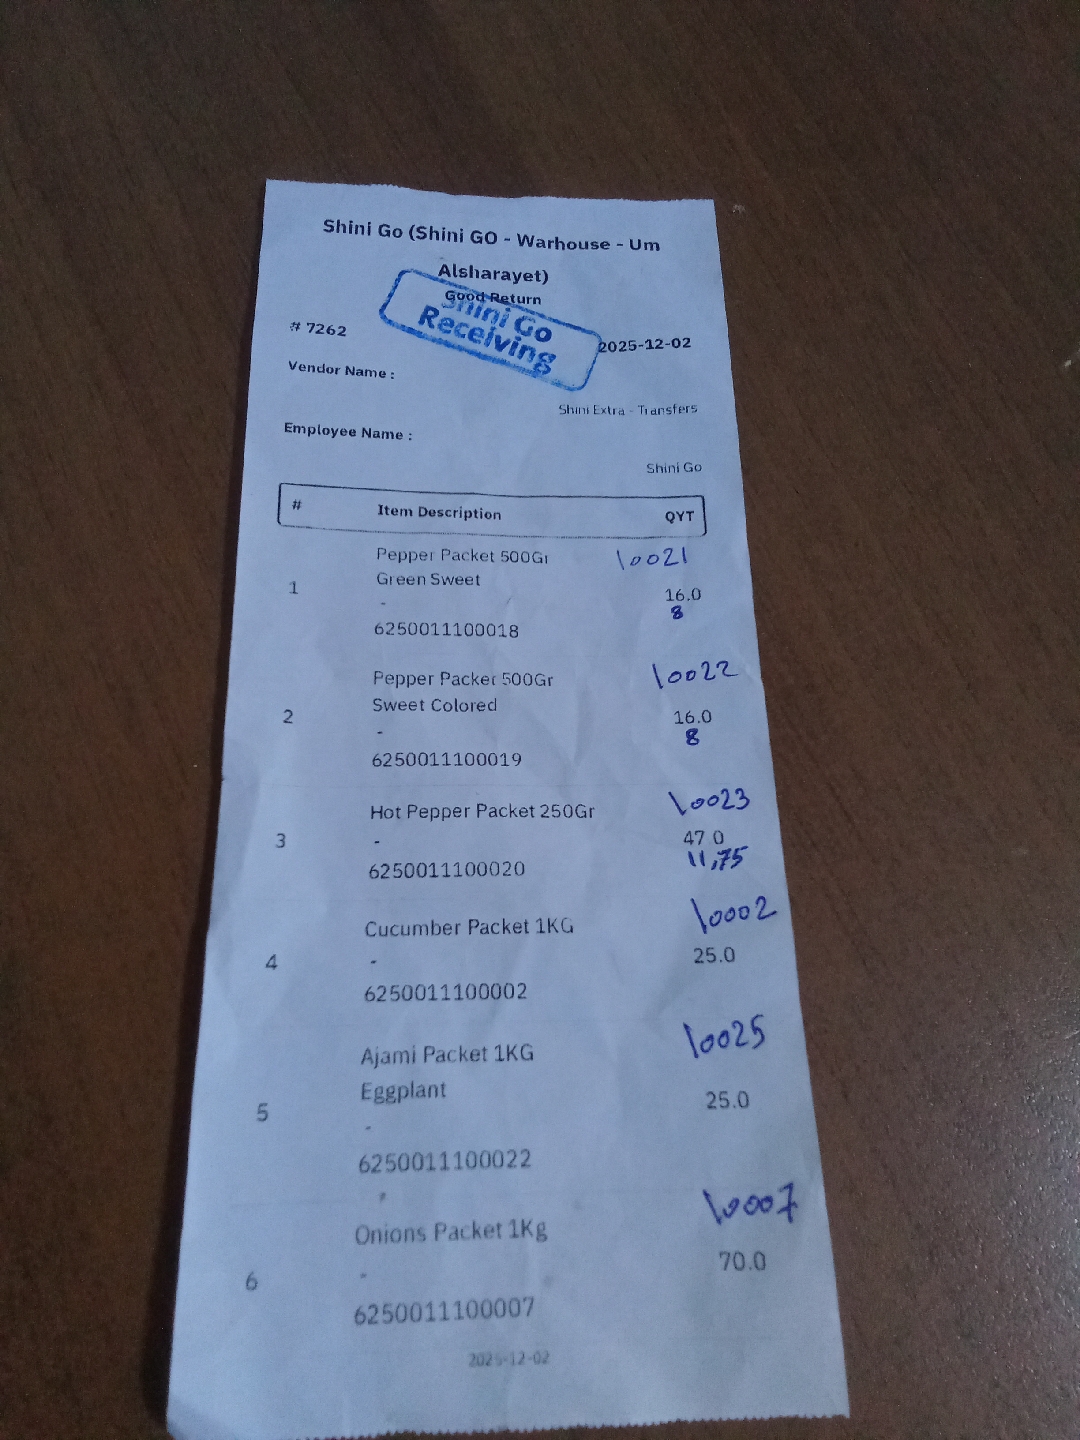 Shini Go (Shini GO - Warhouse - Um
Alsharayet)
Good Return
Shini Go
Receiving
# 7262
2025-12-02
Vendor Name :
Shini Extra - Transfers
Employee Name :
Shini Go
# Item Description QYT
Pepper Packet 500Gr 10021
Green Sweet
1 16.0
- 8
6250011100018
Pepper Packet 500Gr 10022
Sweet Colored
2 16.0
- 8
6250011100019
Hot Pepper Packet 250Gr 10023
3 - 47.0
11,75
6250011100020
Cucumber Packet 1KG 10002
4 - 25.0
6250011100002
10025
Ajami Packet 1KG
Eggplant
5 25.0
-
6250011100022
10007
Onions Packet 1Kg
6 - 70.0
6250011100007
2025-12-02